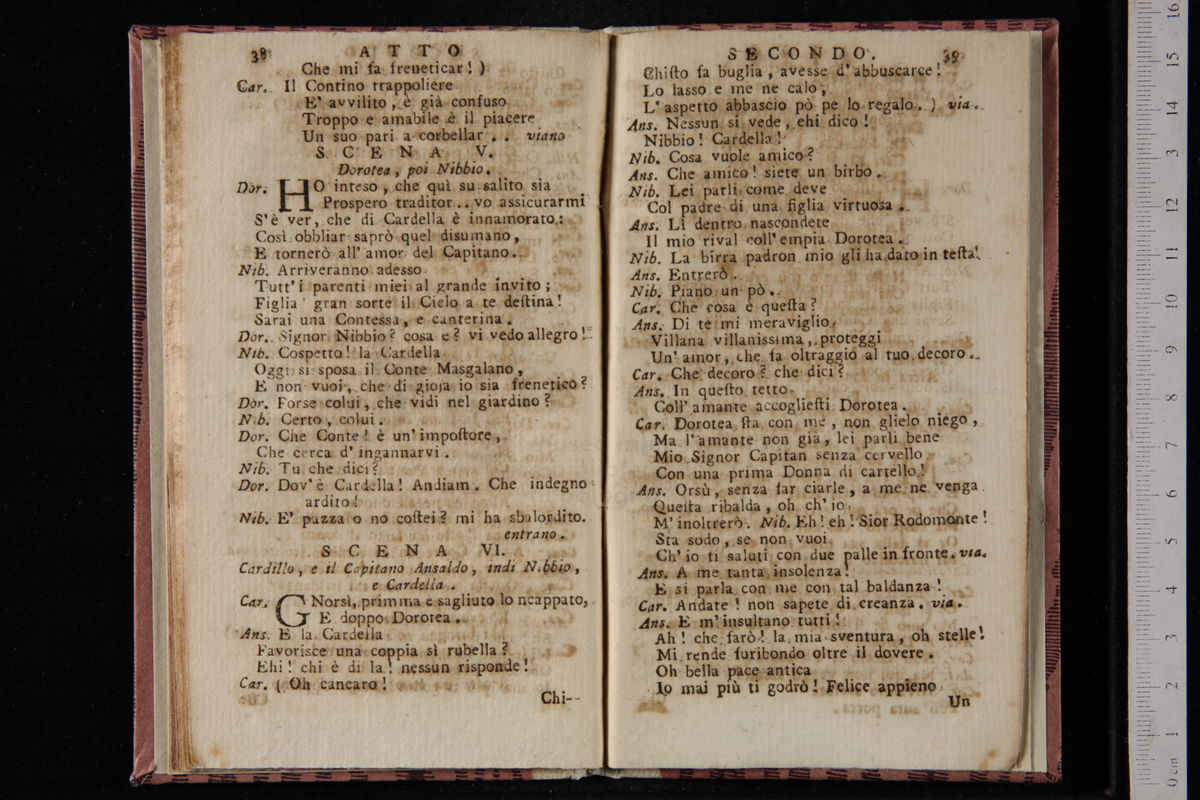 38 ATTO
Che mi fa freneticar! )
Car. Il Contino trappoliere
E' avvilito, è già confuso
Troppo e amabile è il piacere
Un suo pari a corbellar . . viano
SCENA V.
Dorotea, poi Nibbio.
Dor. HO inteso, che quì su salito sia
Prospero traditor .. vo assicurarmi
S'è ver, che di Cardella è innamorato:
Così obbliar saprò quel disumano,
E tornerò all'amor del Capitano.
Nib. Arriveranno adesso
Tutt'i parenti miei al grande invito;
Figlia gran sorte il Cielo a te deſtina!
Sarai una Contessa, e canterina.
Dor. Signor Nibbio? cosa e? vi vedo allegro!
Nib. Cospetto! la Cardella
Oggi si sposa il Conte Masgalano,
E non vuoi, che di gioja io sia frenetico?
Dor. Forse colui, che vidi nel giardino?
Nib. Certo, colui.
Dor. Che Conte! è un'impoſtore,
Che cerca d'ingannarvi.
Nib. Tu che dici?
Dor. Dov'è Cardella! Andiam. Che indegno
ardito!
Nib. E' pazza o no coſtei? mi ha sbalordito.
entrano.
SCENA VI.
Cardillo, e il Capitano Ansaldo, indi Nibbio,
e Cardella.
Car. GNorsì, primma e sagliuto lo ncappato,
E doppo Dorotea.
Ans. E la Cardella
Favorisce una coppia sì rubella?
Ehi! chi è di la! nessun risponde!
Car. ( Oh cancaro!
Chi-
SECONDO. 39
Chiſto fa buglia, avesse d'abbuscarce!
Lo lasso e me ne calo,
L'aspetto abbascio pò pe lo regalo. ) via.
Ans. Nessun si vede, ehi dico!
Nibbio! Cardella!
Nib. Cosa vuole amico?
Ans. Che amico! siete un birbo.
Nib. Lei parli come deve
Col padre di una figlia virtuosa.
Ans. Lì dentro nascondete
Il mio rival coll'empia Dorotea.
Nib. La birra padron mio gli ha dato in teſta!
Ans. Entrerò.
Nib. Piano un pò.
Car. Che cosa è queſta?
Ans. Di te mi meraviglio
Villana villanissima, proteggi
Un'amor, che fa oltraggio al tuo decoro.
Car. Che decoro? che dici?
Ans. In queſto tetto
Coll'amante accoglieſti Dorotea.
Car. Dorotea ſta con me, non glielo niego,
Ma l'amante non già, lei parli bene
Mio Signor Capitan senza cervello
Con una prima Donna di cartello!
Ans. Orsù, senza far ciarle, a me ne venga
Queſta ribalda, oh ch'io
M'inoltrerò. Nib. Eh! eh! Sior Rodomonte!
Sta sodo, se non vuoi
Ch'io ti saluti con due palle in fronte. via.
Ans. A me tanta insolenza!
E si parla con me con tal baldanza!
Car. Andate! non sapete di creanza. via.
Ans. E m'insultano tutti!
Ah! che farò! la mia sventura, oh stelle!
Mi rende furibondo oltre il dovere.
Oh bella pace antica
Io mai più ti godrò! Felice appieno
Un
0 cm 1 2 3 4 5 6 7 8 9 10 11 12 3 14 15 16